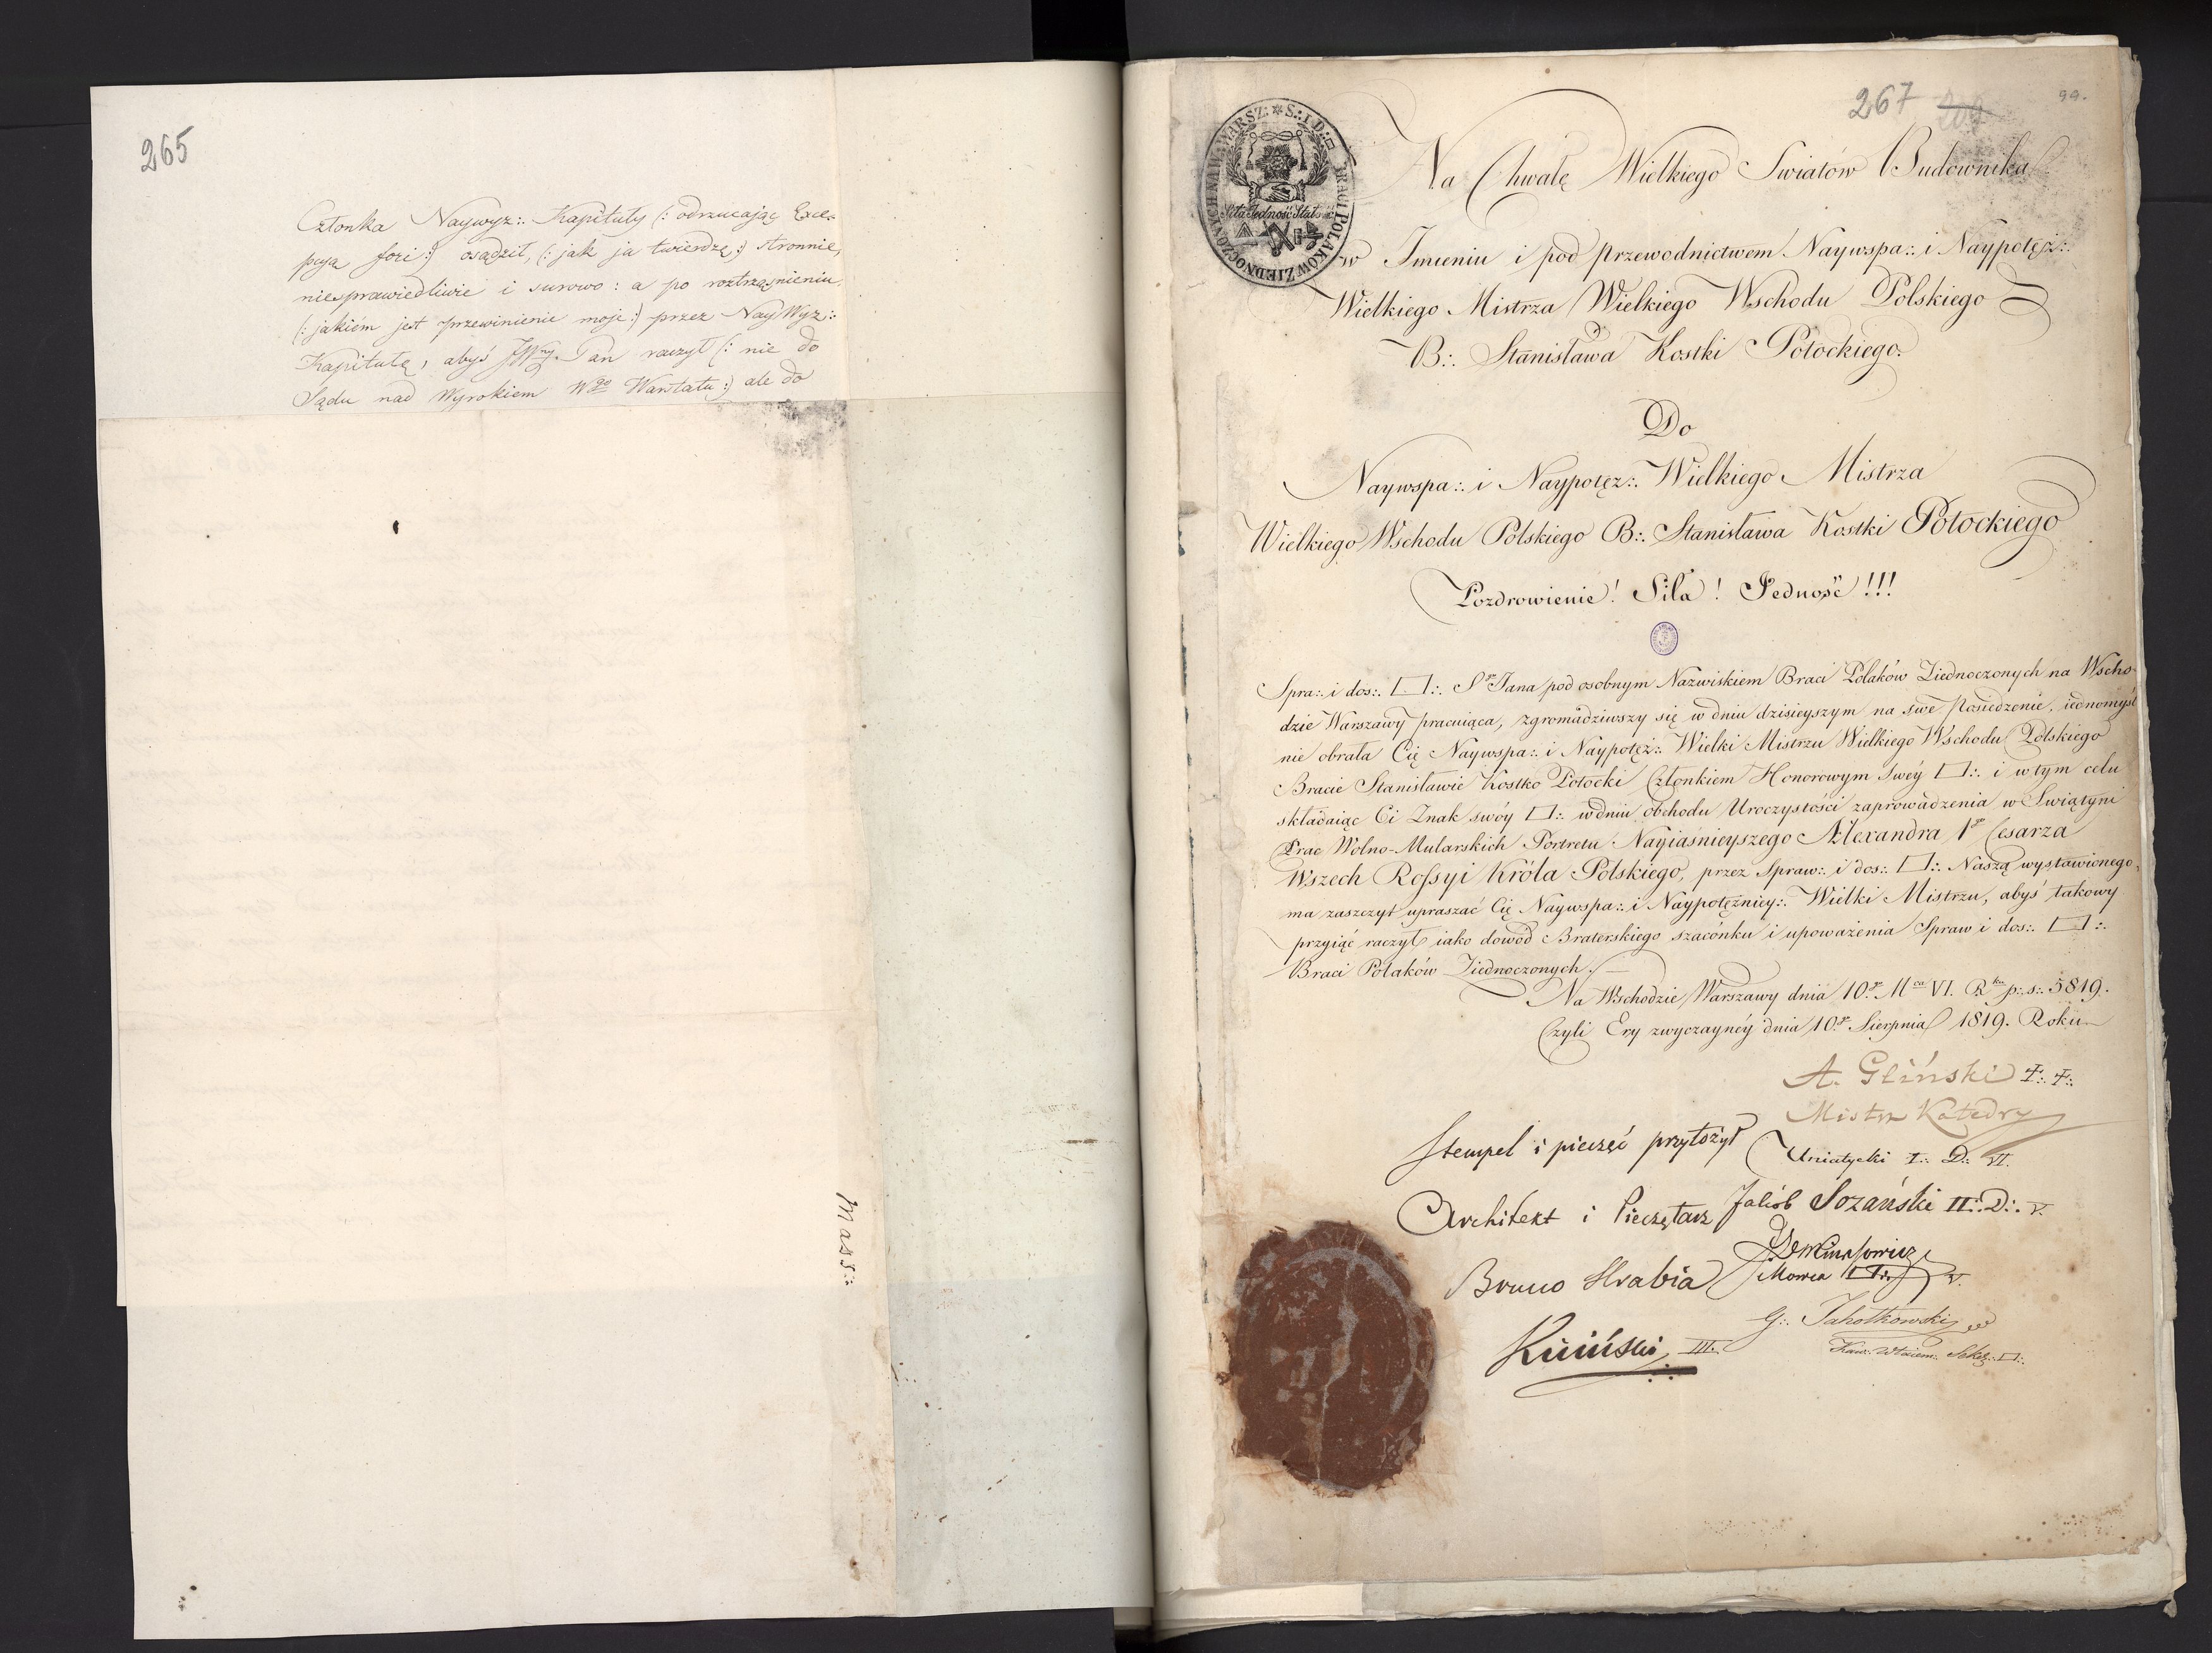 265
Członka Naywyż:. Kapituły (: odrzucając Exce-
pcją fori:) osądził, (: jak ja twierdzę :) stronnie,
niesprawiedliwie i surowo : a po roztrząśnieniu,
(: jakiém jest przewinienie moje :) przez NayWyż:.
Kapitułę, abyś JWny Pan raczył (: nie do
Sądu nad Wyrokiem Wgo Warstatu :) ale do
Mass:.
267
99.
WARSZ: * S:. I D:. BRACI POLAKÓW ZIEDNOCZONYCH NA W:
Siła Jedność Stałość
Na Chwałę Wielkiego Swiatów Budownika
w Imieniu i pod przewodnictwem Naywspa:. i Naypotęż:.
Wielkiego Mistrza Wielkiego Wschodu Polskiego
B:. Stanisława Kostki Potockiego.
Do
Naywspa:. i Naypotęż:. Wielkiego Mistrza
Wielkiego Wschodu Polskiego B:. Stanisława Kostki Potockiego
Pozdrowienie! Siła! Jedność!!!
Spra:. i dos:. □:. Sgo Jana pod osobnym Nazwiskiem Braci Polaków Ziednoczonych na Wscho-
dzie Warszawy pracuiąca, zgromadziwszy się w dniu dzisieyszym na swe Posiedzenie, iednomyśl
nie obrała Cię Naywspa:. i Naypotęż:. Wielki Mistrzu Wielkiego Wschodu Polskiego
Bracie Stanisławie Kostko Potocki Członkiem Honorowym swéy □:. i w tym celu
składaiąc Ci Znak swóy □:. w dniu obchodu Uroczystości zaprowadzenia w Swiątyni
Prac Wolno-Mularskich Portretu Nayiaśnieyszego Alexandra 1go Cesarza
Wszech Rossyi Króla Polskiego, przez Spraw:. i dos:. □:. Naszą wystawionego,
ma zaszczyt upraszać Cię Naywspa:. i Naypotężniey:. Wielki Mistrzu, abyś takowy
przyiąć raczył iako dowód Braterskiego szacónku i upoważenia Spraw i dos:. □:.
Braci Polaków Ziednoczonych. —
Na Wschodzie Warszawy dnia 10.go Mca VI. Rku p:. s:. 5819.
Czyli Ery zwyczaynéy dnia 10.go Sierpnia 1819. Roku
A. Gliński
Mistrz Katedry
Stempel i pieczęć przyłożył
Uniatycki I:. D:. VI.
Architekt i Pieczętarz
Jakób Sozański II:. D:. V.
Bruno Hrabia
Mowca □:. V.
Kiciński III.
G:. Jahołkowski
Sekr:. □:.